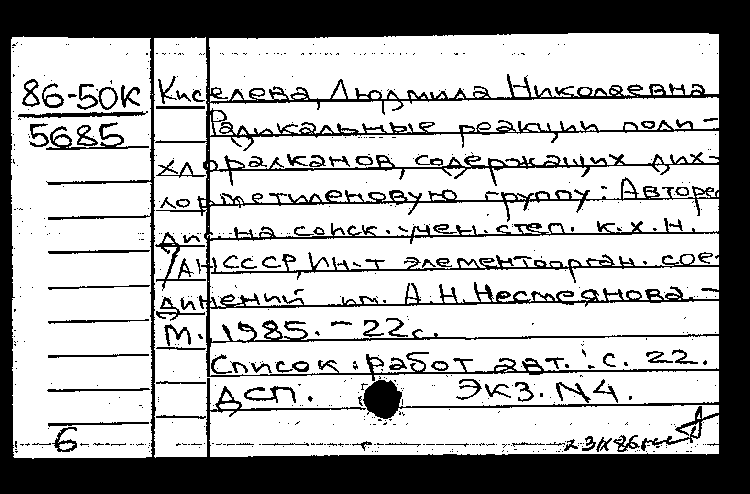 86-50К
5685
Киселева, Людмила Николаевна
Радикальные реакции поли-
хлоралканов, содержащих дих-
лорметиленовую группу: Авторе
дис на соиск. учен. степ. к.х.н.
/АН СССР, Ин-т элементоорган. сое-
динений им. А.Н. Несмеянова. -
М. 1985. - 22 с.
Список работ авт.: с. 22.
ДСП. ЭКЗ. N4.
6